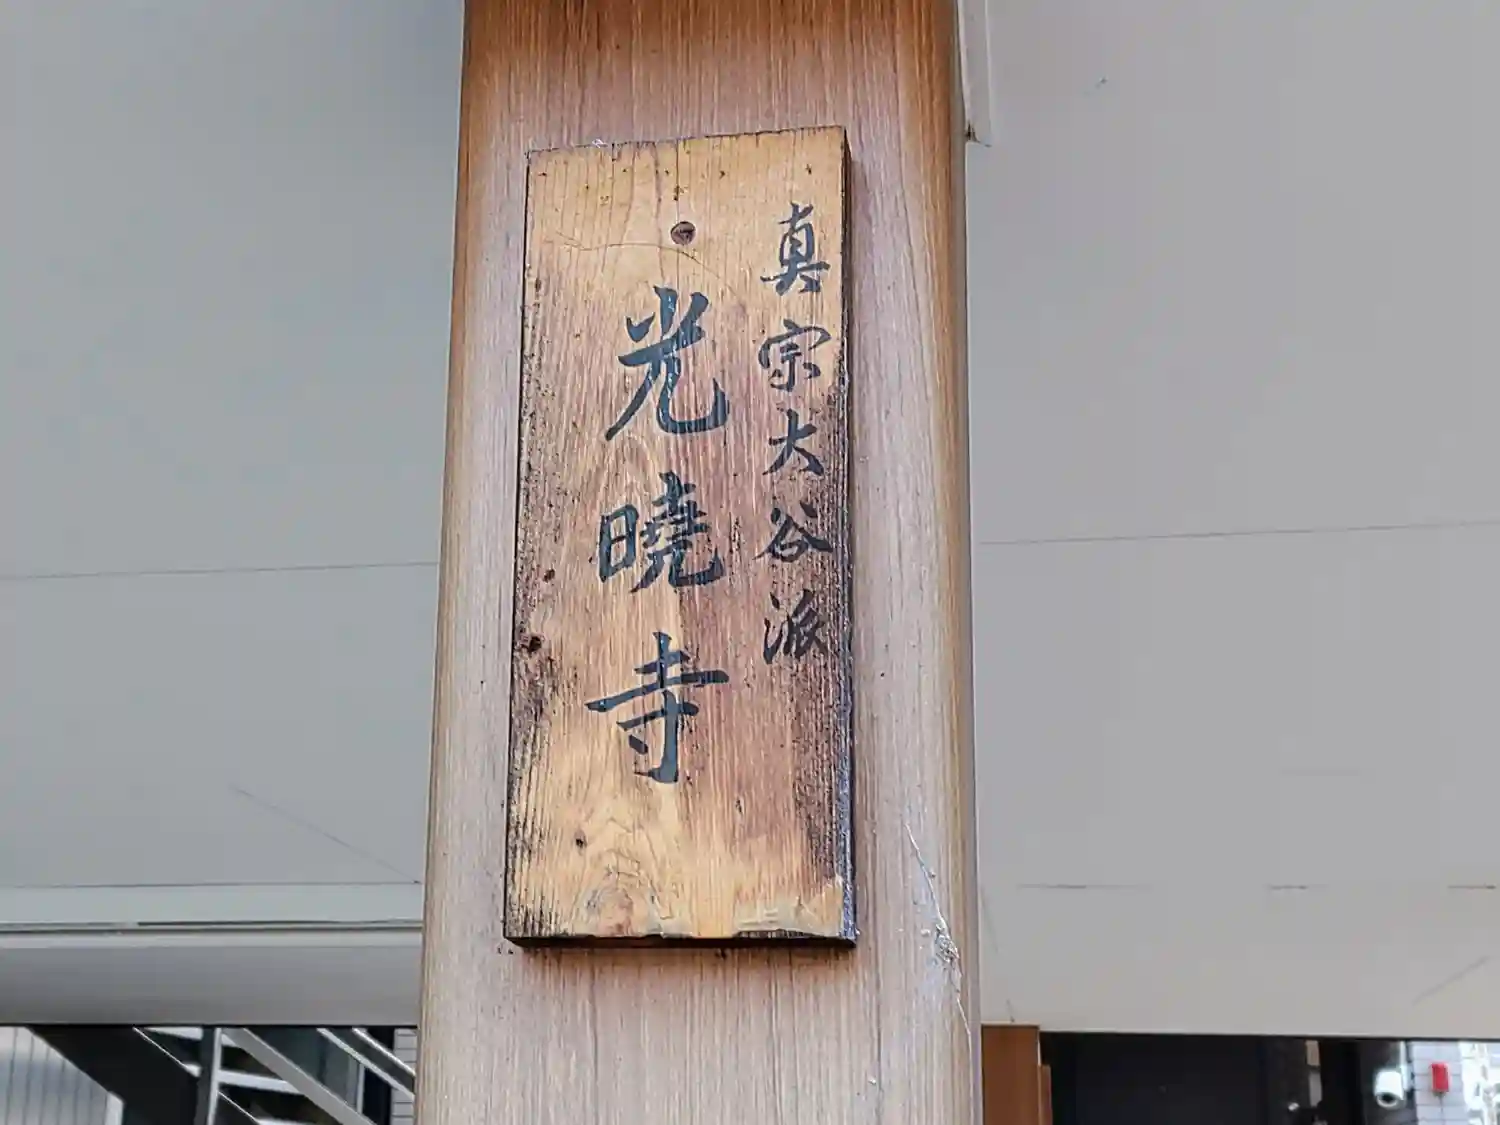 真宗大谷派
光曉寺